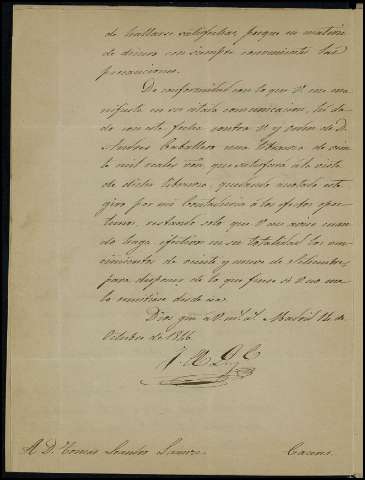 de hallarse satisfechas, porque en materia
de dinero son siempre convenientes las
precauciones.
De conformidad con lo que V. me ma
nifiesta en su citada comunicacion, he da
do con esta fecha contra V. y orden de D.
Andres Caballero una libranza de vein
te mil reales von. que satisfará á la vista
de dicha libranza, quedando anotado este
giro por mi Contaduria á los efectos opor
tunos, restando solo que V. me avise cuan
do haga efectivos en su totalidad los ven
cimientos de veinte y nueve de Setiembre,
para disponer de lo que fuere si V. no me
lo remitiere desde esa.
Dios gue. á V. ms. as. Madrid 14 de
Octubre de 1846.
A D. Tomás Sanchez Caceres.